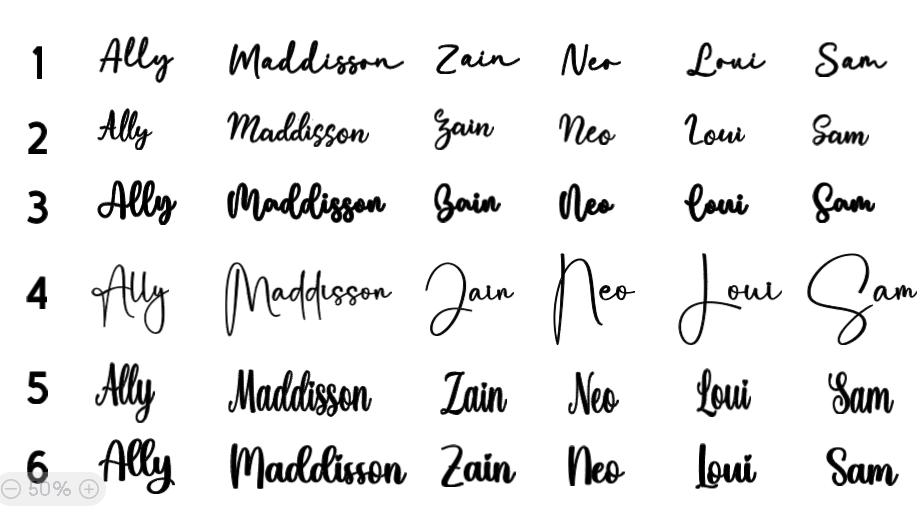 1 Ally Maddisson Zain Neo Loui Sam
2 Ally Maddisson Zain Neo Loui Sam
3 Ally Maddisson Zain Neo Loui Sam
4 Ally Maddisson Zain Neo Loui Sam
5 Ally Maddisson Zain Neo Loui Sam
6 Ally Maddisson Zain Neo Loui Sam
50%